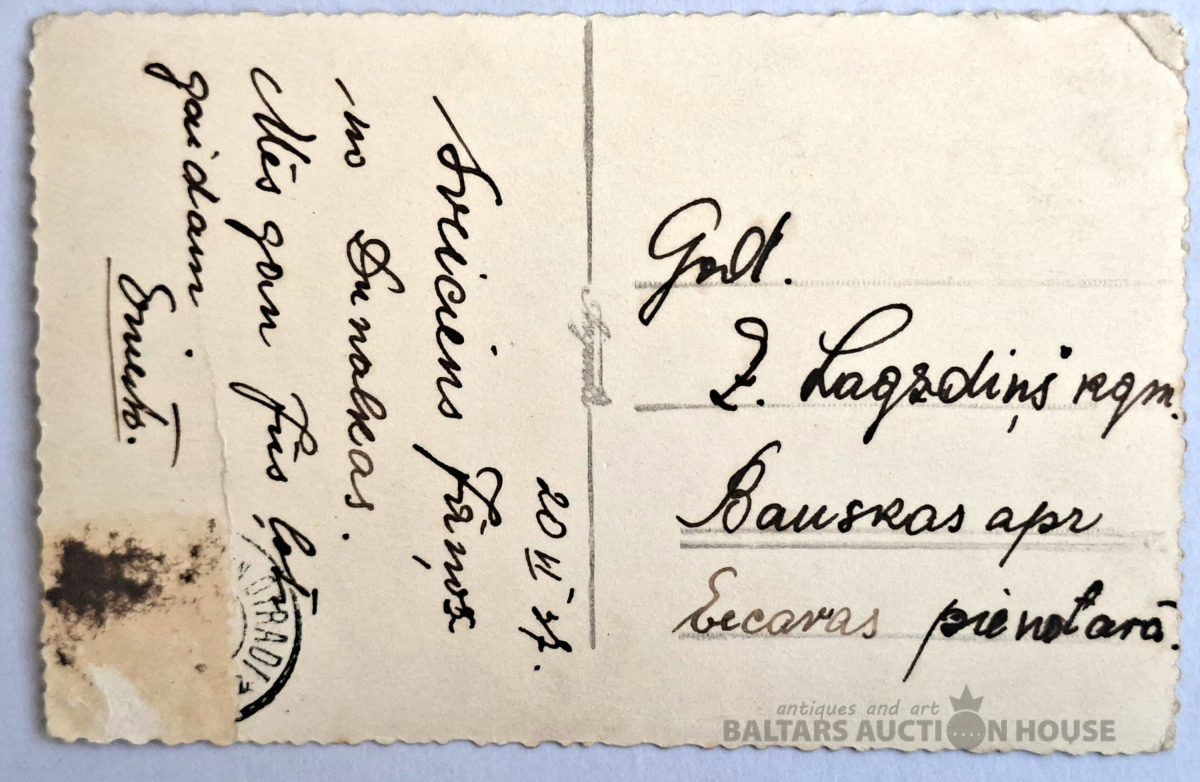 20 VI 37.
Sveiciens Jāņos
no Dunalkas.
Mēs gan Jūs ļoti
gaidam.
God.
Z. Lagzdiņš kgm.
Bauskas apr
Iecavas pienotavā.
antiques and art
BALTARS AUCTION HOUSE